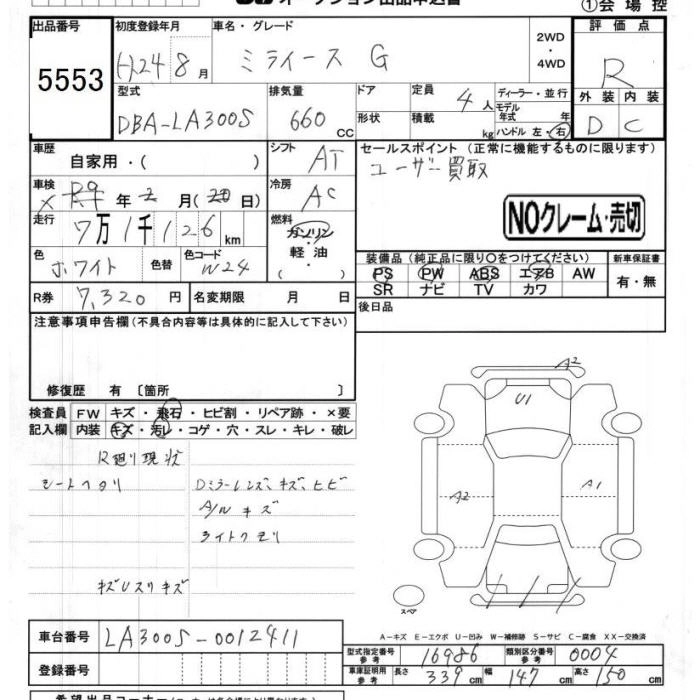 ①会場控
出品番号 5553
初度登録年月 H24 8月
車名・グレード ミライース G
2WD・4WD
評価点 R
外装 内装
D C
型式 DBA-LA300S
排気量 660 CC
ドア
形状
定員 4人
積載 kg
ディーラー・並行
モデル年式 年
ハンドル 左・右
車歴 自家用・( )
シフト AT
セールスポイント(正常に機能するものに限ります)
ユーザー買取
車検 × R9年2月(20日)
冷房 AC
NOクレーム・売切
走行 7万1千126km
燃料 ガソリン・軽油・( )
色 ホワイト 色替 色コード W24
装備品(純正品に限り○をつけてください)
新車保証書
PS PW ABS エアB AW
SR ナビ TV カワ
有・無
R券 7,320円
名変期限 月 日
後日品
注意事項申告欄(不具合内容等は具体的に記入して下さい)
修復歴 有〔箇所 〕
検査員記入欄
FW キズ・飛石・ヒビ割・リペア跡・×要
内装 キズ・汚レ・コゲ・穴・スレ・キレ・破レ
R廻り現状
シートヘタリ
Dミラーレンズ、キズ、ヒビ
A/Wキズ
ライトクモリ
キズUスリキズ
A2
U1
A2
A1
スペア
A-キズ E-エクボ U-凹み W-補修跡 S-サビ C-腐食 XX-交換済
車台番号 LA300S-0012411
登録番号
型式指定番号 参考 16986
類別区分番号 参考 0004
車庫証明用 参考 長さ 339cm 幅 147cm 高さ 150cm